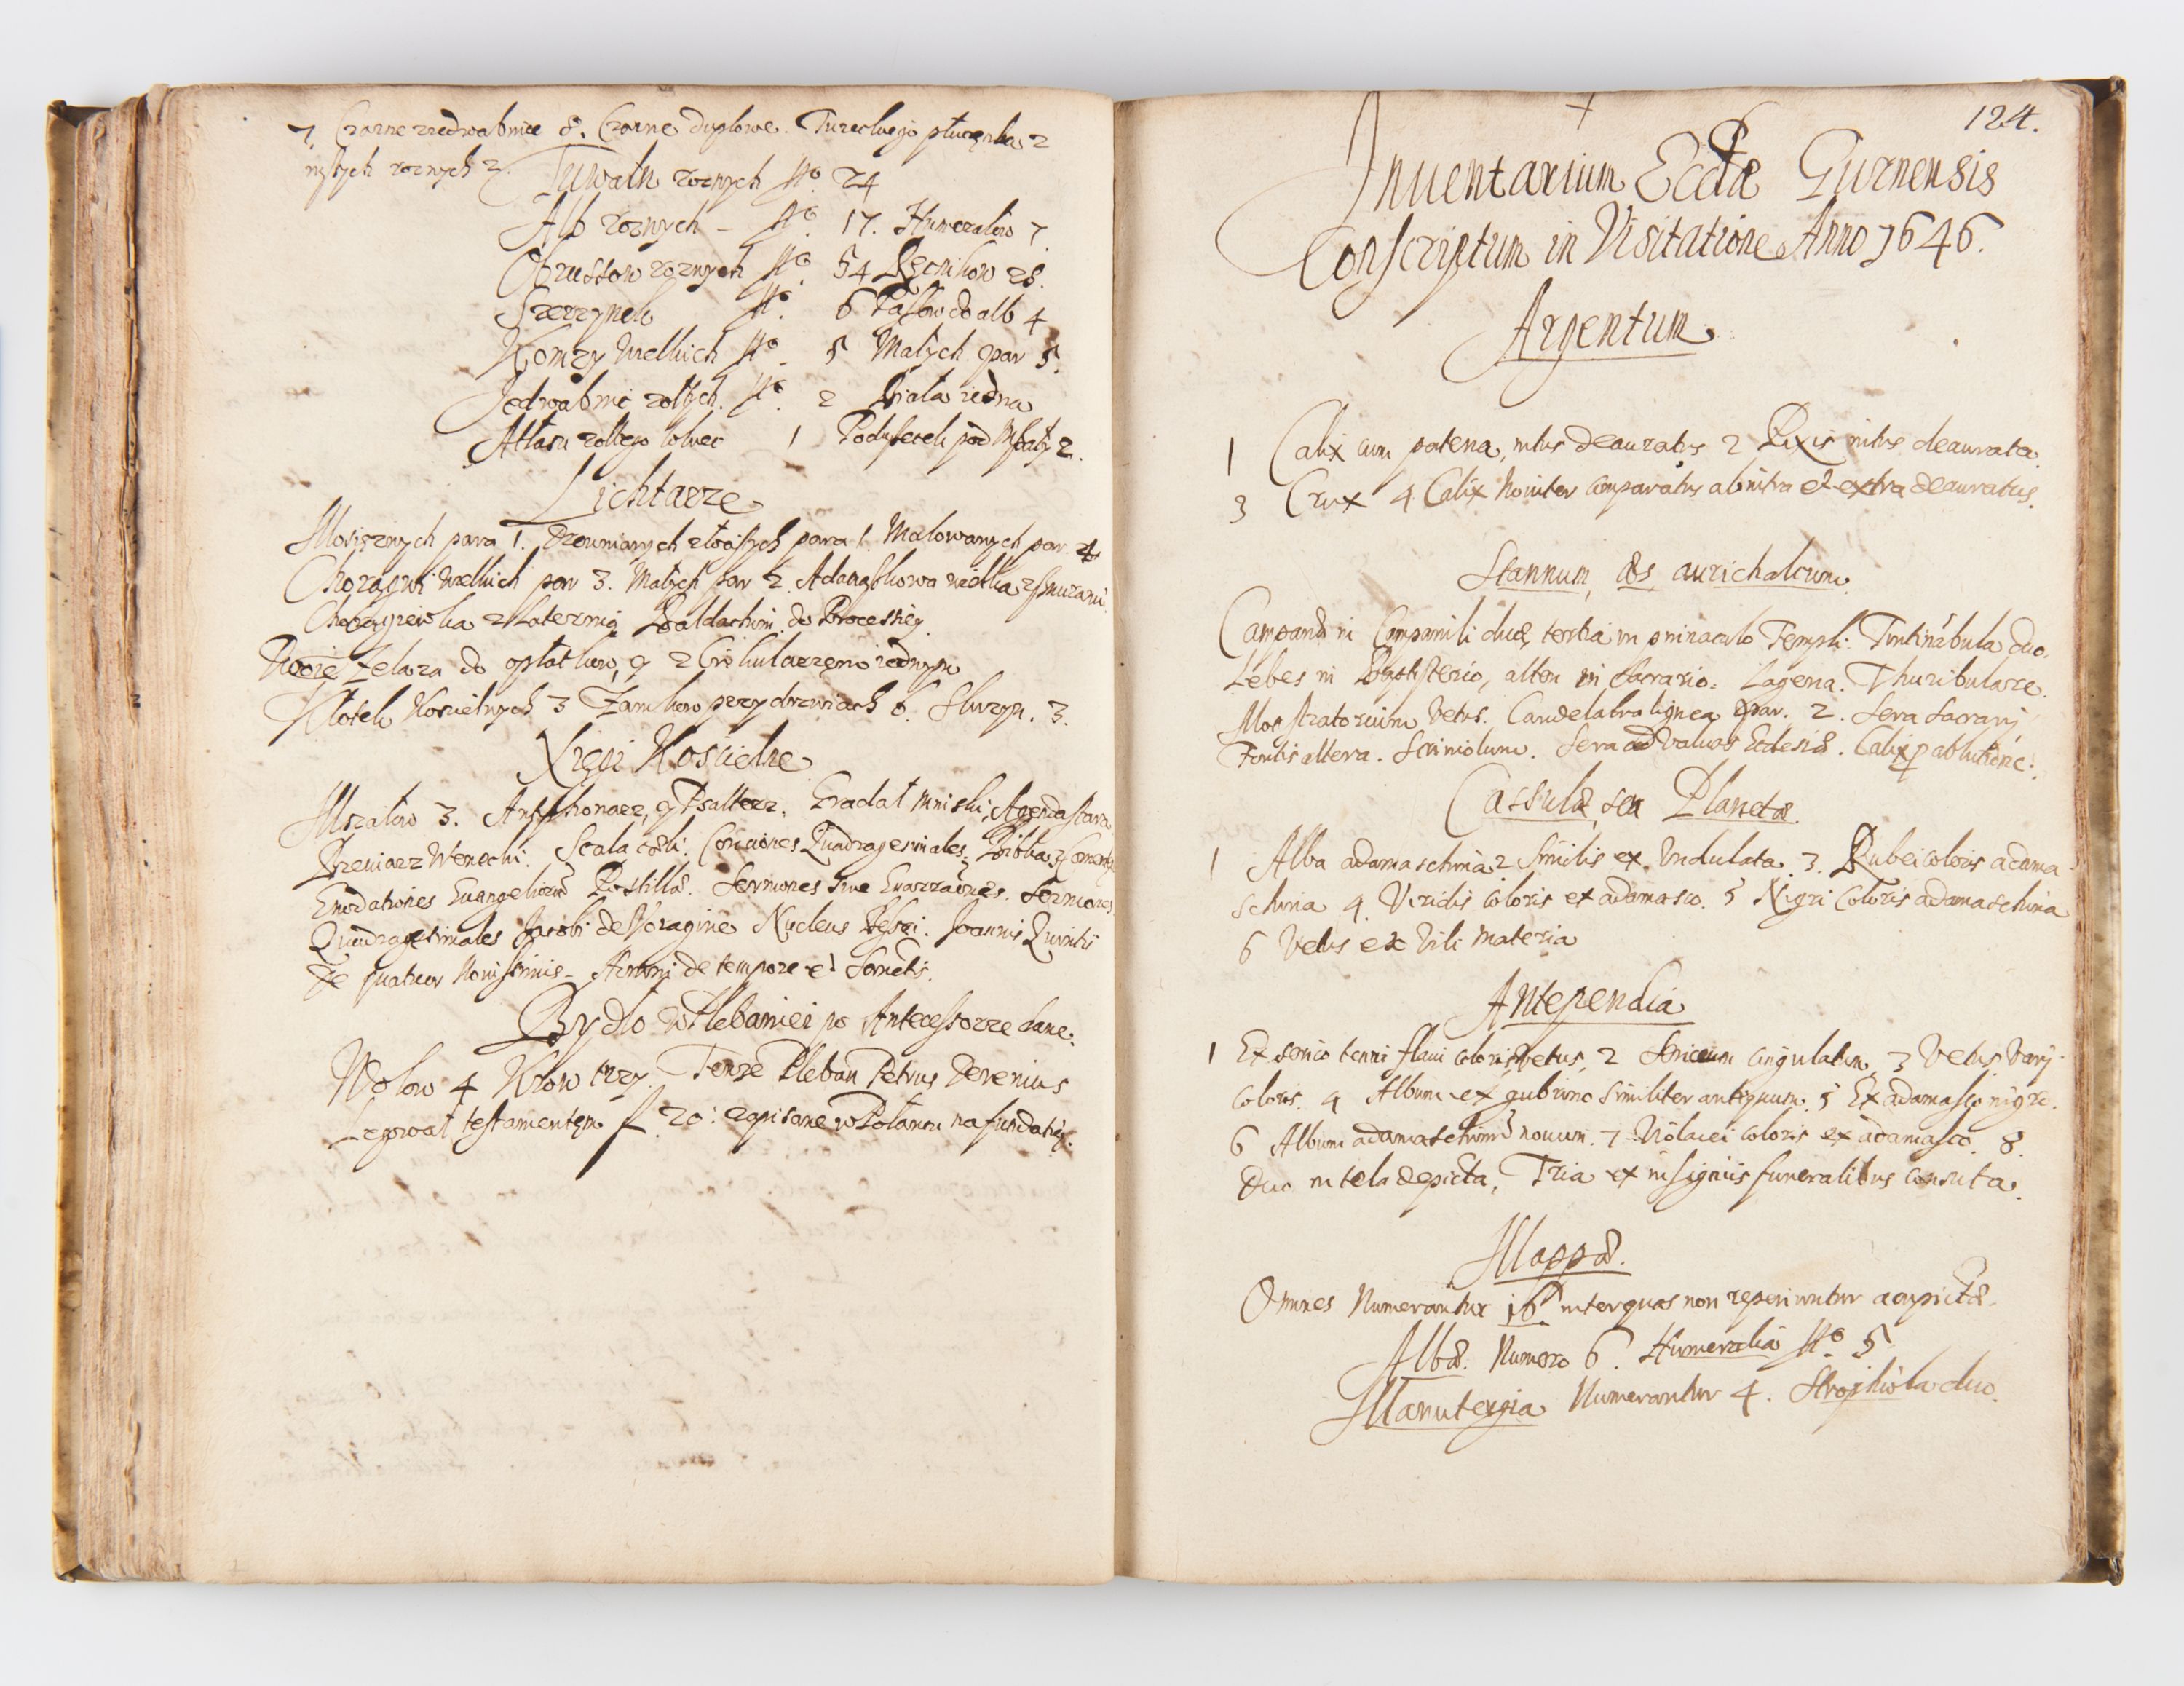 7. Czarne zedwabnice 8. Czarne duplowe. Tureckiego 2
roznych 2.
Tuwaln roznych No. 24
Alb roznych – No. 17. Humerałow 7.
Obrussow roznych No. 54 Ręcznikow 28.
No. 6 Pasow do alb 4
Komzy Wielkich No. 5 Małych par 5.
Jedwabnic zołtych No. 2 Biała iedna
Attłasu zołtego 1 Podusecek pod Mszały 2.
Lichtarze
Mosięznych para 1. para 1. Malowanych par 4
Chorągwi wielkich par 3. Małych par 2. Adamaszkowa wielka
z Laternią Baldachim do Processiey
Zelaza do opłatkow, y z iednym
Kłotek Koscielnych 3 Zamkow przy drzwiach 6. 3.
Xięgi Koscielne
Mszałow 3. Antyphonarz, y Psałterz. Graduał Mniski, Agenda stara
Brewiarz Wenecki. Scala cœli. Conciones Quadragesimales. Biblia
Enodationes Euangeliorũ Postillæ. Sermones siue Enarrationes. Sermones
Quadragesimales Jacobi de Voragine Nucleus Joannis
De quatuor Nouissimis – de tempore et Sanctis.
Bydło w Plebaniei po Antecessorze dane.
Wołow 4 Krow trzy. Tenze Pleban Petrus
Legował testamentem f. 20: zapisane na fundatią.
124.
Inuentarium Eccłæ Gurnensis
Conscriptum in Visitatione Anno 1646.
Argentum
1 Calix cum patena, intus deauratus 2 Pixis intus deaurata.
3 Crux 4 Calix Nouiter comparatus ab intra et extra deauratus.
Stannum, æs, aurichalcum.
Campanæ in Campanili duæ, tertia in pinnaculo Templi. Tintinabula duo.
Lebes in Baptisterio, alter in Sacrario. Lagena. Thuribulare.
Monstratorium vetus. Candelabra lignea par. 2. Sera Sacrarij
Fontis altera. Scriniolum. Sera ad valuas Ecclesiæ. Calix p ablutione.
Cassulæ, seu Planetæ.
1 Alba adamaschina 2 Similis ex Vndulata. 3. Rubei coloris adama-
schina 4. Viridis coloris ex adamasco. 5 Nigri Coloris adamaschina
6 Vetus ex vili materia
Antependia
1 Ex serico tenui flaui coloris vetus, 2 Sericeum cingulatum, 3 Vetus Varij
coloris. 4 Album ex similiter antiquum. 5 Ex adamasco nigro.
6 Album adamaschinũ nouum. 7 Violacei coloris ex adamasco. 8.
Duo in tela depicta, Tria ex insigniis funeralibus consuta.
Mappæ.
Omnes Numerantur 16 inter quas non reperiuntur acupictæ.
Albæ. Numero 6. Humeralia No. 5
Manutergia Numerantur 4. Strophiola duo.